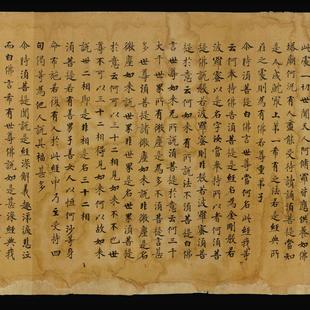 此處一切世間天人阿脩羅皆應供養如佛
塔廟何況有人盡能受持讀誦須菩提當知
是人成就最上第一希有之法若是經典所
在之處則為有佛若尊重弟子
尒時須菩提白佛言世尊當何名此經我等
云何奉持佛告須菩提是經名為金剛般若
波羅蜜以是名字汝當奉持所以者何須菩
提佛說般若波羅蜜則非般若波羅蜜須菩
提於意云何如來有所說法不須菩提白佛
言世尊如來無所說須菩提於意云何三千
大千世界所有微塵是為多不須菩提言甚
多世尊須菩提諸微塵如來說非微塵是名
微塵如來說世界非世界是名世界須菩提
於意云何可以三十二相見如來不不也世
尊不可以三十二相得見如來何以故如來
說三十二相即是非相是名三十二相
須菩提若有善男子善女人以恒河沙等身
命布施若復有人於此經中乃至受持四
句偈等為他人說其福甚多
尒時須菩提聞說是經深解義趣涕淚悲泣
而白佛言希有世尊佛說如是甚深經典我